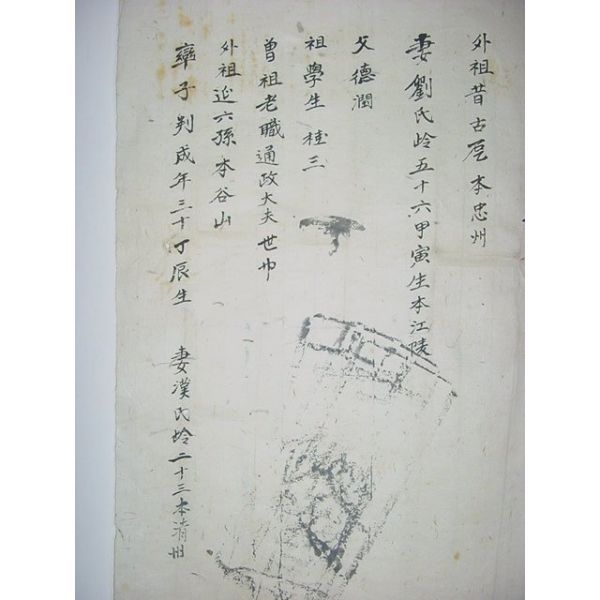 外祖昔古尼本忠州
妻劉氏岭五十六甲寅生本江陵
父德潤
祖學生桂三
曾祖老職通政大夫世中
外祖延六孫本谷山
率子判成年三十丁辰生 妻漢氏岭二十三本淸州